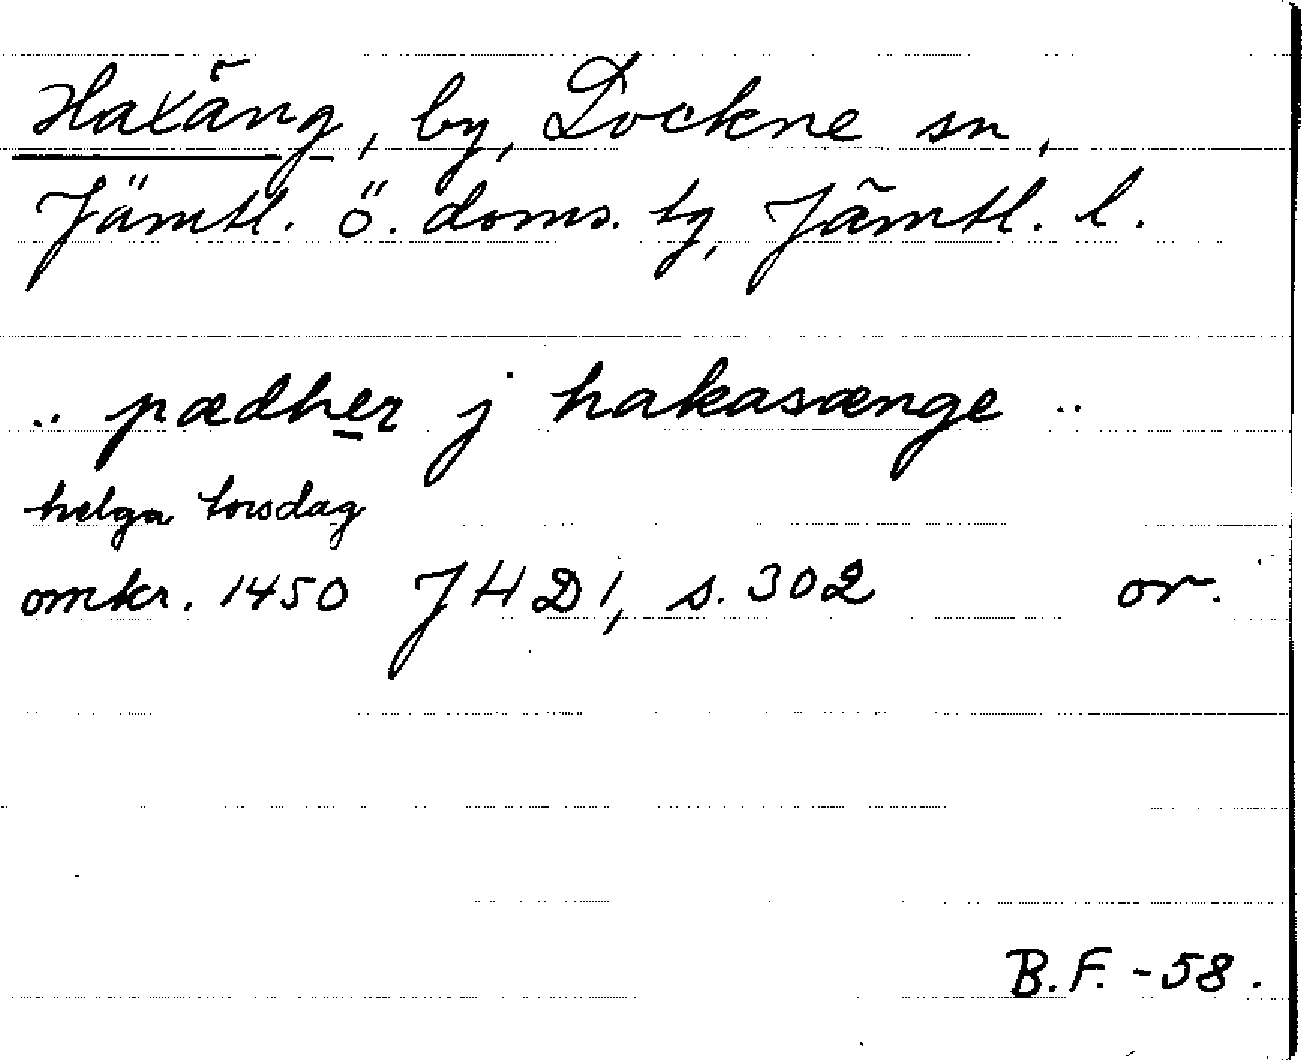 Haxäng, by, Lockne sn,
Jämtl. ö. doms. tg, Jämtl. l.
.. pædher j hakasænge ..
helga torsdag
omkr. 1450 JHD 1, s. 302 or.
B.F. -58.